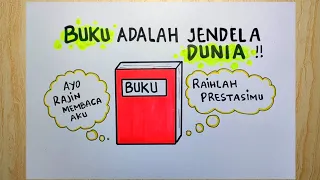 BUKU ADALAH JENDELA
DUNIA !!
AYO
RAJIN
MEMBACA
AKU
BUKU
RAIHLAH
PRESTASIMU